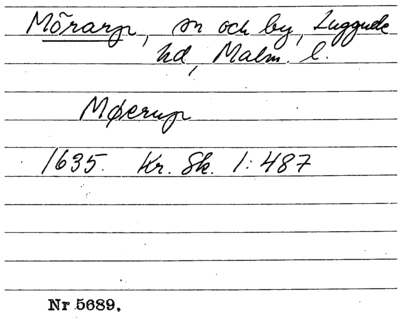 Mörarp, sn och by, Luggude
hd, Malm. l.
Møerup
1635. Kr. Sk. 1:487
Nr 5689.